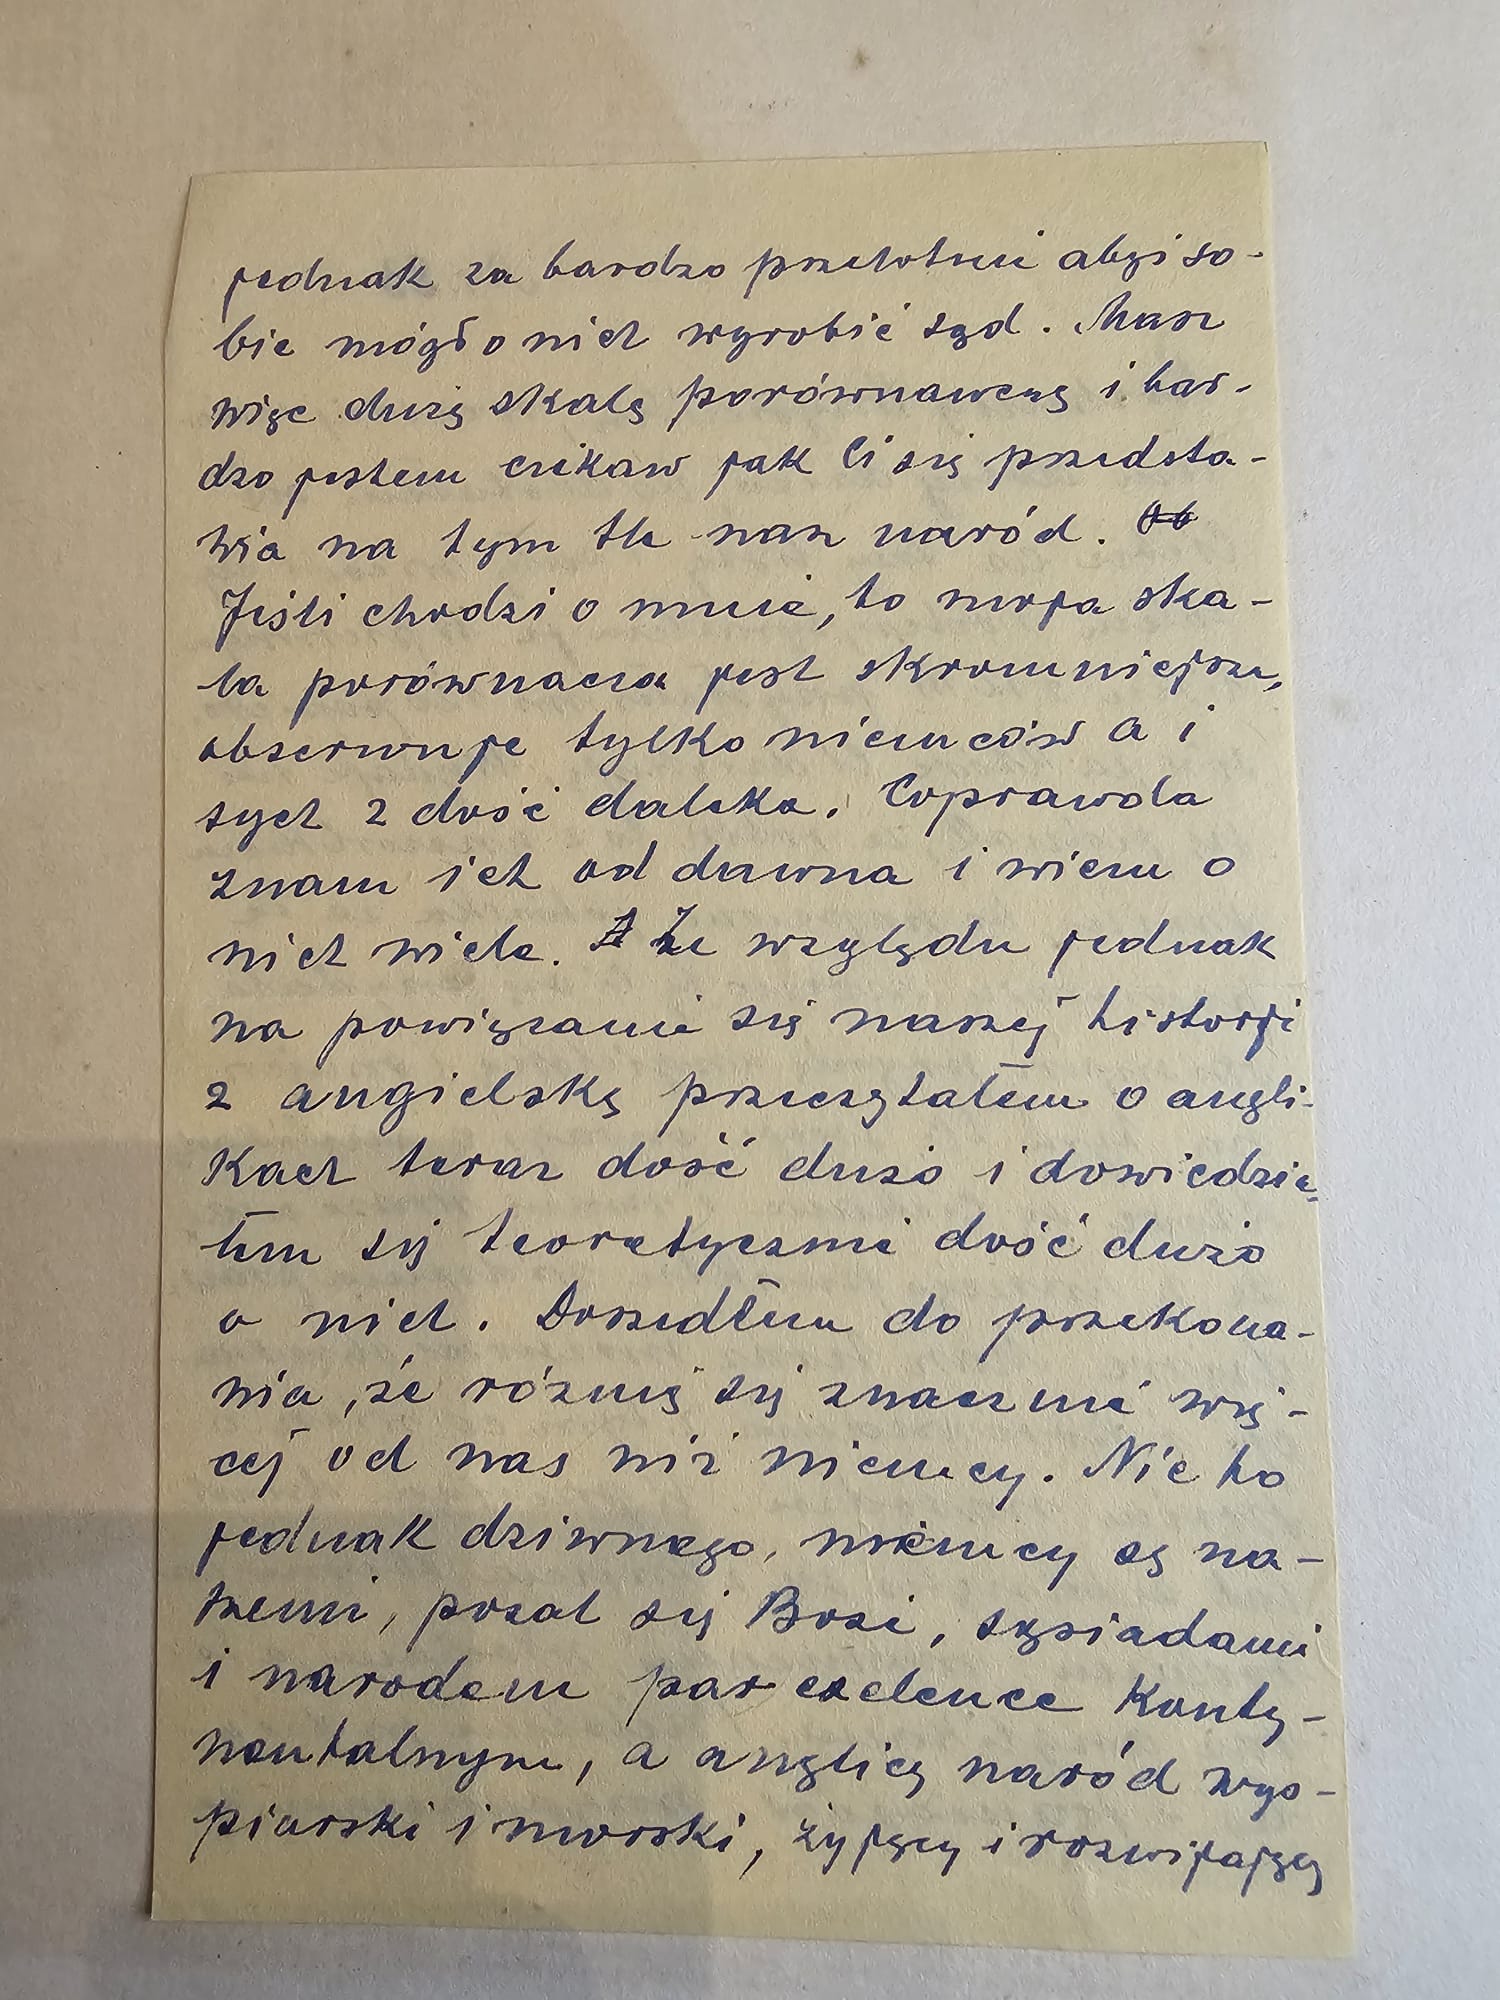 jednak za bardzo przelotnie abyś so-
bie mógł o nich wyrobić sąd. Masz
więc dużą skalę porównawczą i bar-
dzo jestem ciekaw jak Ci się przedsta-
wia na tym tle nasz naród.
Jeśli chodzi o mnie, to moja ska-
la porównacza jest skromniejsza,
obserwuję tylko niemców a i
tych z dość daleka. Coprawda
znam ich od dawna i wiem o
nich wiele. Ze względu jednak
na powiązanie się naszej historji
z angielską przeczytałem o angli-
kach teraz dość dużo i dowiedzia-
łem się teoretycznie dość dużo
o nich. Doszedłem do przekona-
nia, że różnią się znacznie wię-
cej od nas niż niemcy. Nic to
jednak dziwnego, niemcy są na-
szemi, pożal się Boże, sąsiadami
i narodem par exelence konty-
nentalnym, a anglicy naród wys-
piarski i morski, żyjący i rozwijający